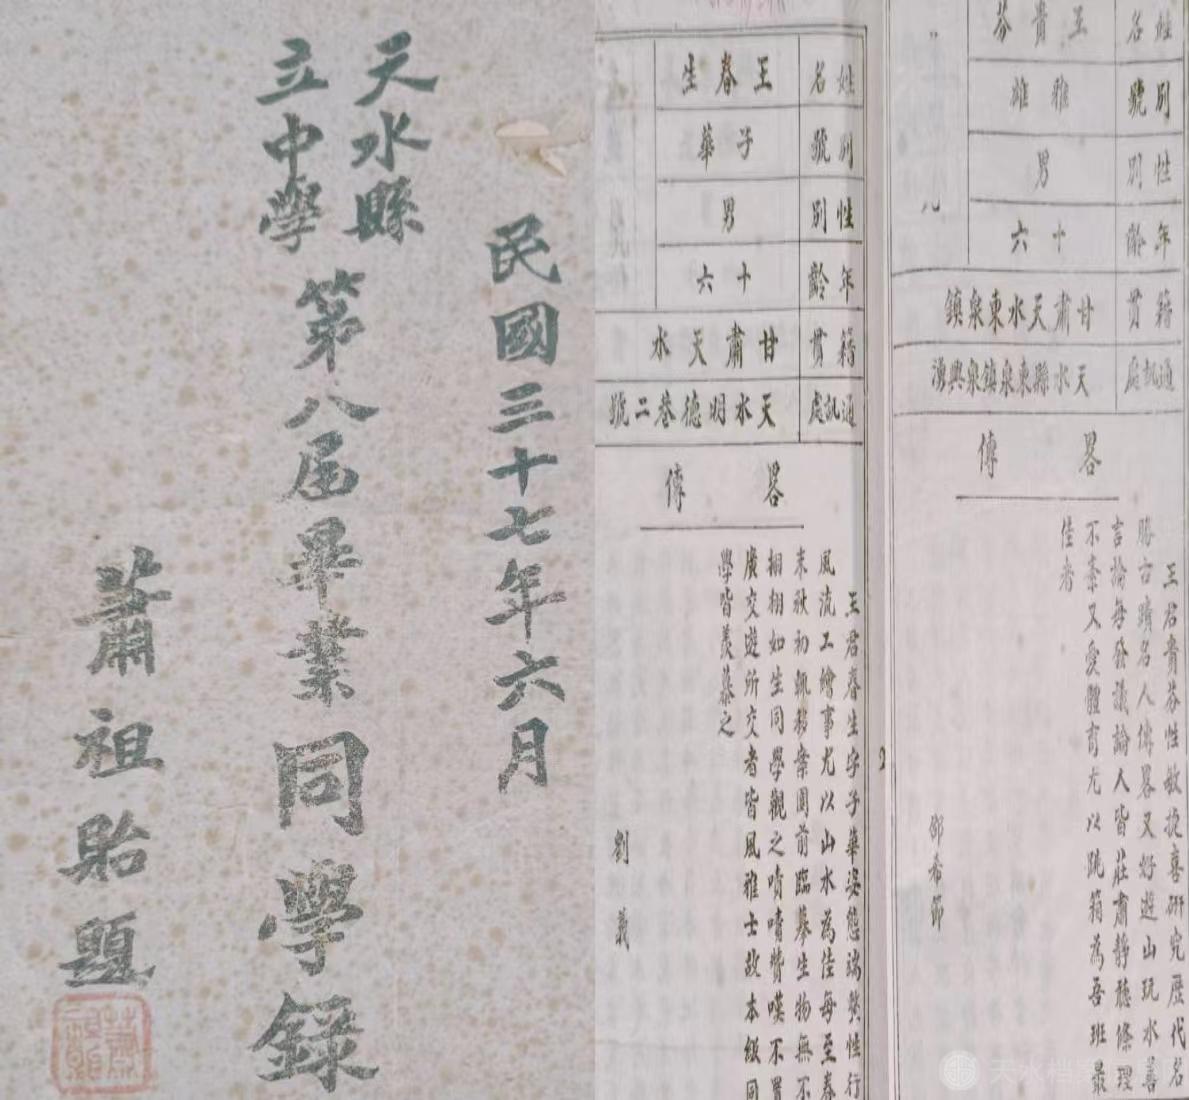 民國三十七年六月
天水縣
立中學
第八屆畢業同學錄
蕭祖貽題
姓名 王貴芬
別號 雅雄
性別 男
年齡 十六
籍貫 甘肅天水東泉鎮
通訊處 天水縣東泉鎮泉興湧
畧傳
王君貴芬性敏捷喜研究歷代名
勝古蹟名人傳畧又好遊山玩水善
言論每發議論人皆莊肅靜聽條理
不紊又愛體育尤以跳箱為吾班最
佳者
邵希節
姓名 王春生
別號 子華
性別 男
年齡 十六
籍貫 甘肅天水
通訊處 天水明德巷二號
畧傳
王君春生字子華姿態端莊性行
風流工繪事尤以山水為佳每至春
末秋初輒移案園前臨摹生物無不
栩栩如生同學觀之嘖嘖贊嘆不置
廣交遊所交者皆風雅士故本級同
學皆羨慕之
劉義
2
天水档案